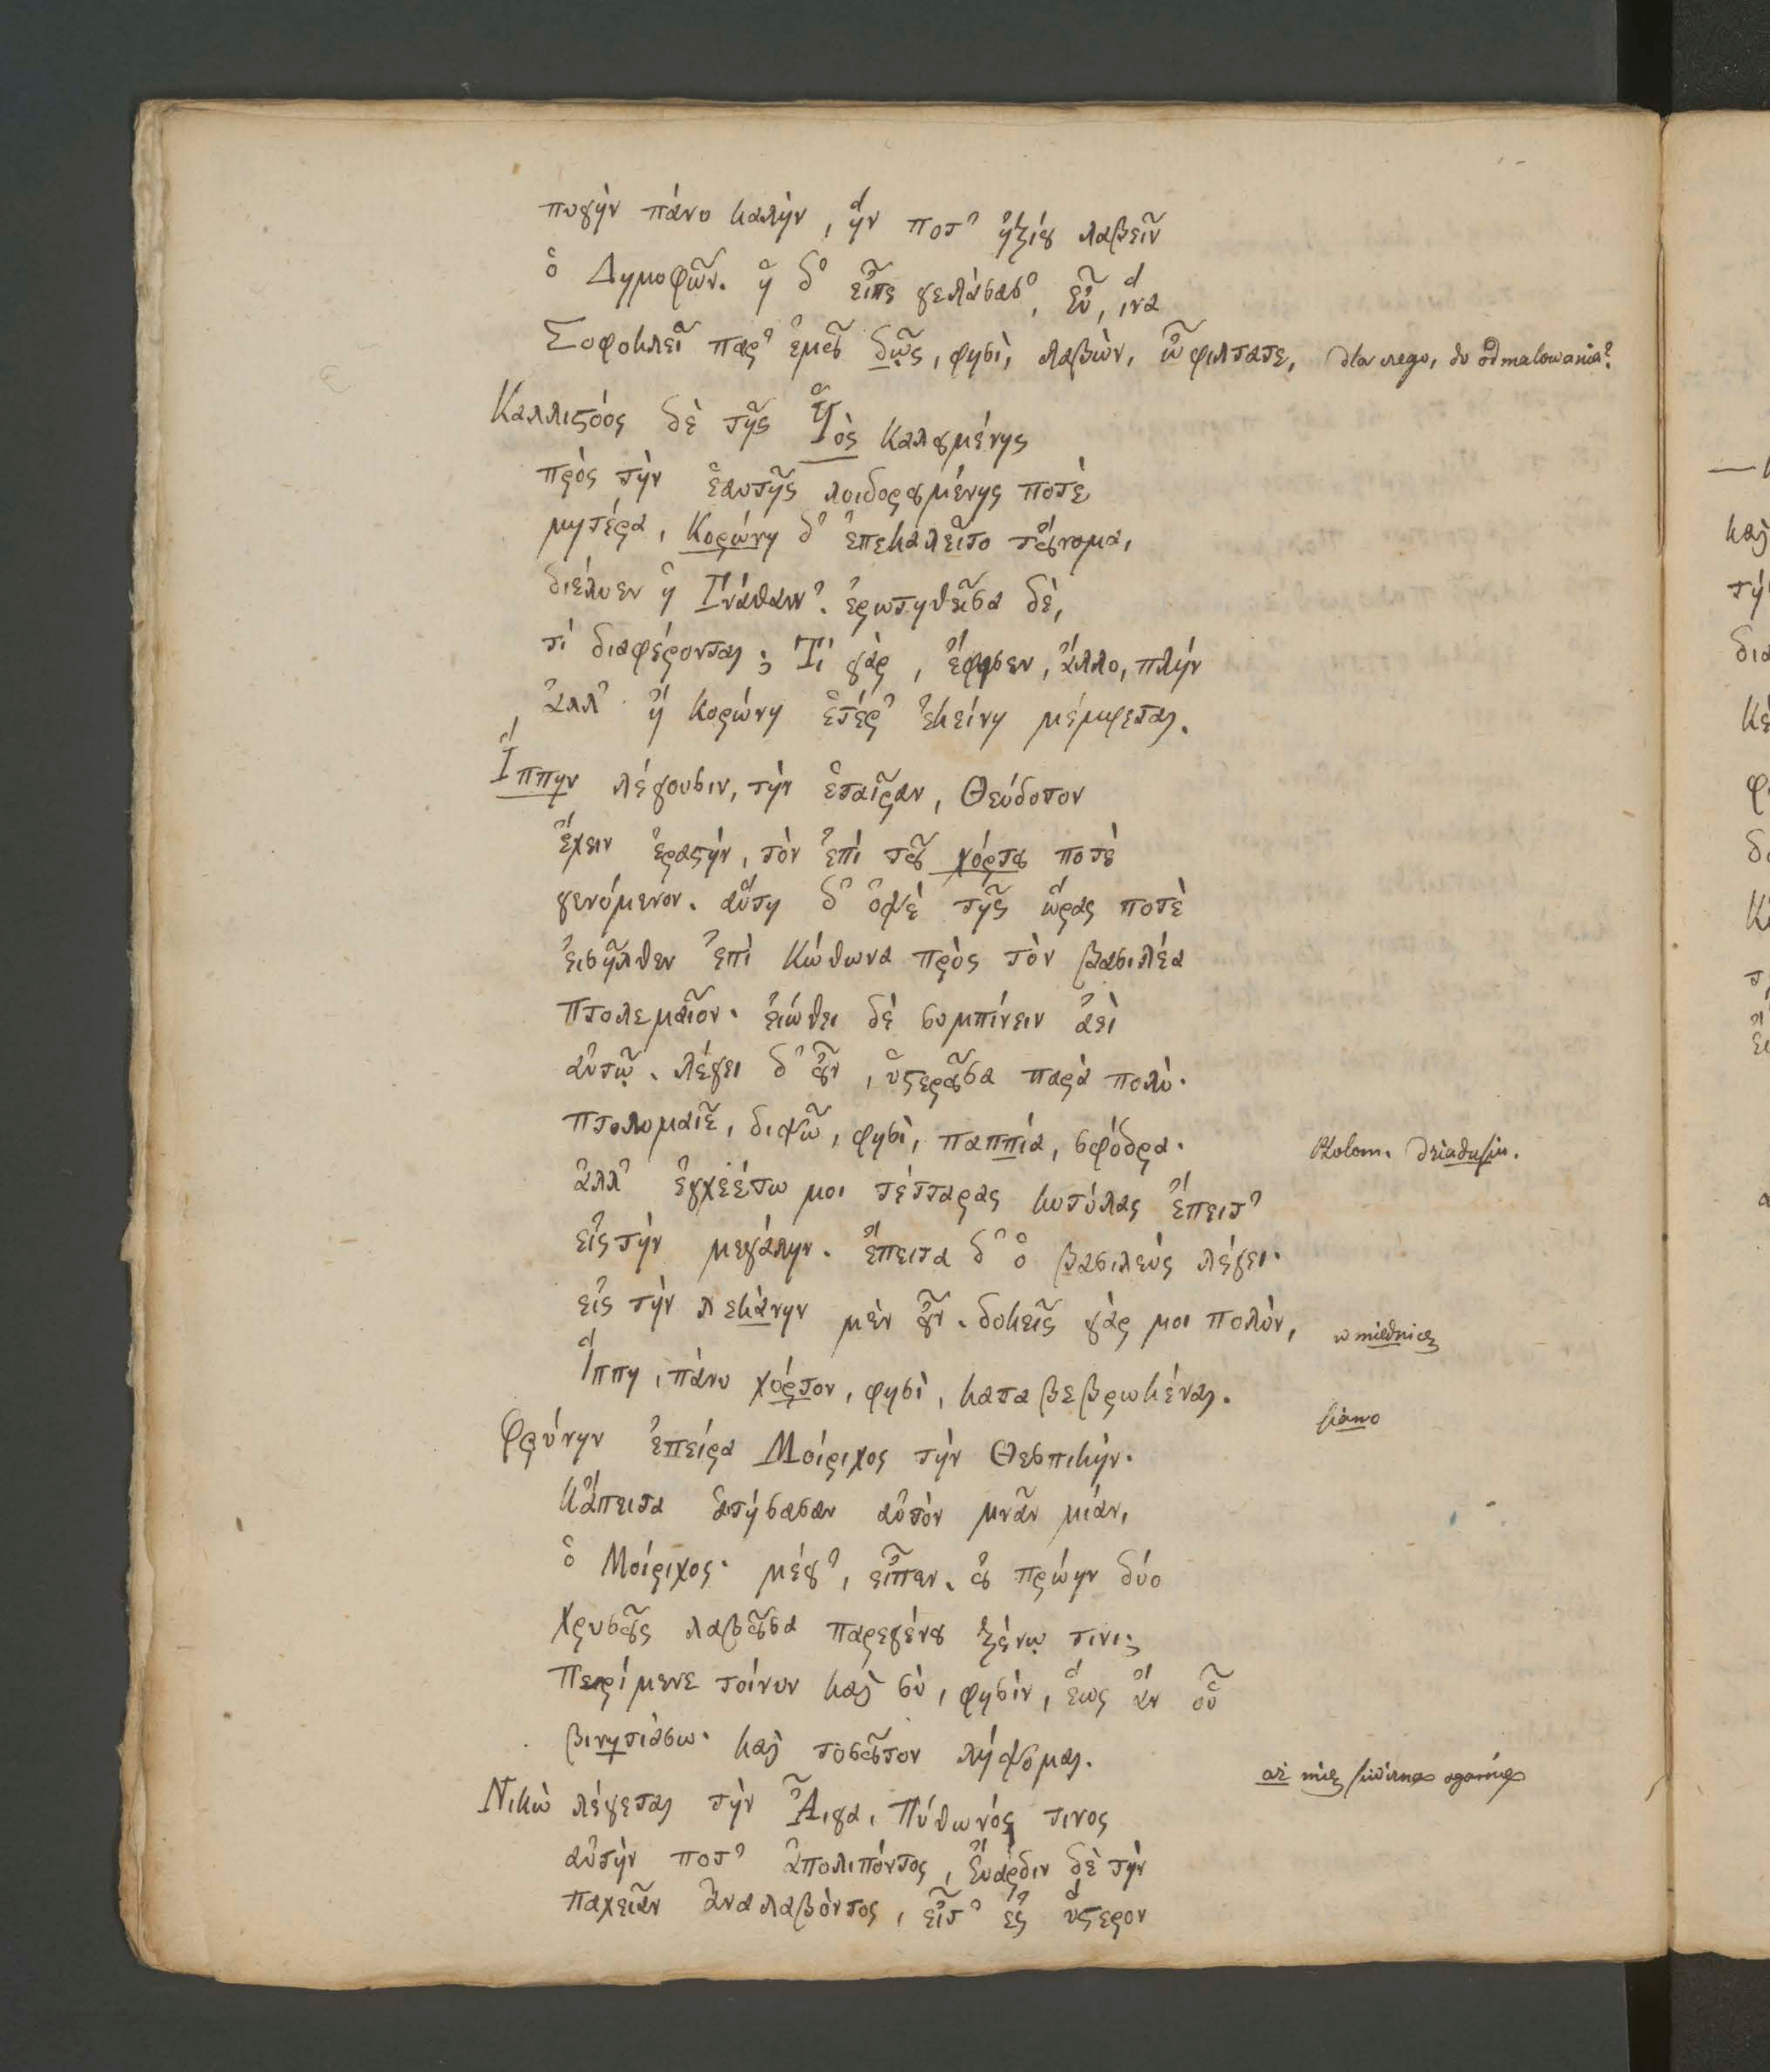 πυγὴν πάνυ καλὴν, ἥν ποτ' ἠξίου λαβεῖν
ὁ Δημοφῶν. ἡ δ' εἶπε γελάσασ', εὖ, ἵνα
Σοφοκλεῖ παρ' ἐμοῦ δῷς, φησὶ, λαβὼν, ὦ φίλτατε, dla niego, do odmalowania?
Καλλιστόος δὲ τῆς Ὑὸς καλουμένης
πρὸς τὴν ἑαυτῆς λοιδορουμένης ποτὲ
μητέρα, Κορώνη δ' ἐπεκαλεῖτο τοὔνομα,
διέλυεν ἡ Γνάθαιν'. ἐρωτηθεῖσα δὲ,
τί διαφέρονται; Τί γὰρ, ἔφησεν, ἄλλο, πλὴν
ἀλλ' ἢ Κορώνη ἑτέρ' ἐκείνη μέμφεται.
Ἵππην λέγουσιν, τὴν ἑταῖραν, Θεόδοτον
ἔχειν ἐραστὴν, τὸν ἐπὶ τοῦ χόρτου ποτὲ
γενόμενον. αὕτη δ' ὀψὲ τῆς ὥρας ποτὲ
εἰσῆλθεν ἐπὶ κώθωνα πρὸς τὸν βασιλέα
Πτολεμαῖον. εἰώθει δὲ συμπίνειν ἀεὶ
αὐτῷ. λέγει δ' οὖν, ὑστεροῦσα παρὰ πολύ.
Πτολομαῖε, διψῶ, φησὶ, παππία, σφόδρα. Ptolom. dziadusiu.
ἀλλ' ἐγχεέτω μοι τέτταρας κοτύλας ἔπειτ'
εἰς τὴν μεγάλην. ἔπειτα δ' ὁ βασιλεὺς λέγει.
εἰς τὴν λεκάνην μὲν οὖν. δοκεῖς γάρ μοι πολὺν, w miednicę
Ἵππη, πάνυ χόρτον, φησὶ, καταβεβρωκέναι.
siano
Φρύνην ἐπείρα Μοίριχος τὴν Θεσπικήν.
κἄπειτα αἰτήσασαν αὐτὸν μνᾶν μίαν,
ὁ Μοίριχος· μέγ', εἶπεν. οὐ πρώην δύο
χρυσοῦς λαβοῦσα παρεγένου ξένῳ τινι;
Περίμενε τοίνυν καὶ σὺ, φησὶν, ἕως ἂν οὗ
βινητιάσω. καὶ τοσοῦτον λήψομαι.
Νικὼ λέγεται τὴν Ἆιγα, Πύθωνός τινος
αὐτὴν ποτ' ἀπολιπόντος, Εὐαρδιν δὲ τὴν
παχεῖαν ἀναλαβόντος, εἶτ' ἐς ὕστερον